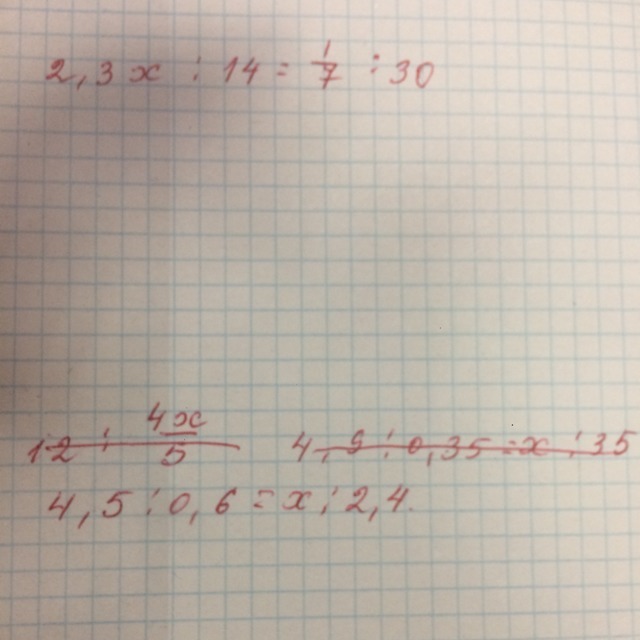 2,3x : 14 = 1/7 : 30
12 : 4x/5 4,9 : 0,35 = x : 35
4,5 : 0,6 = x : 2,4.